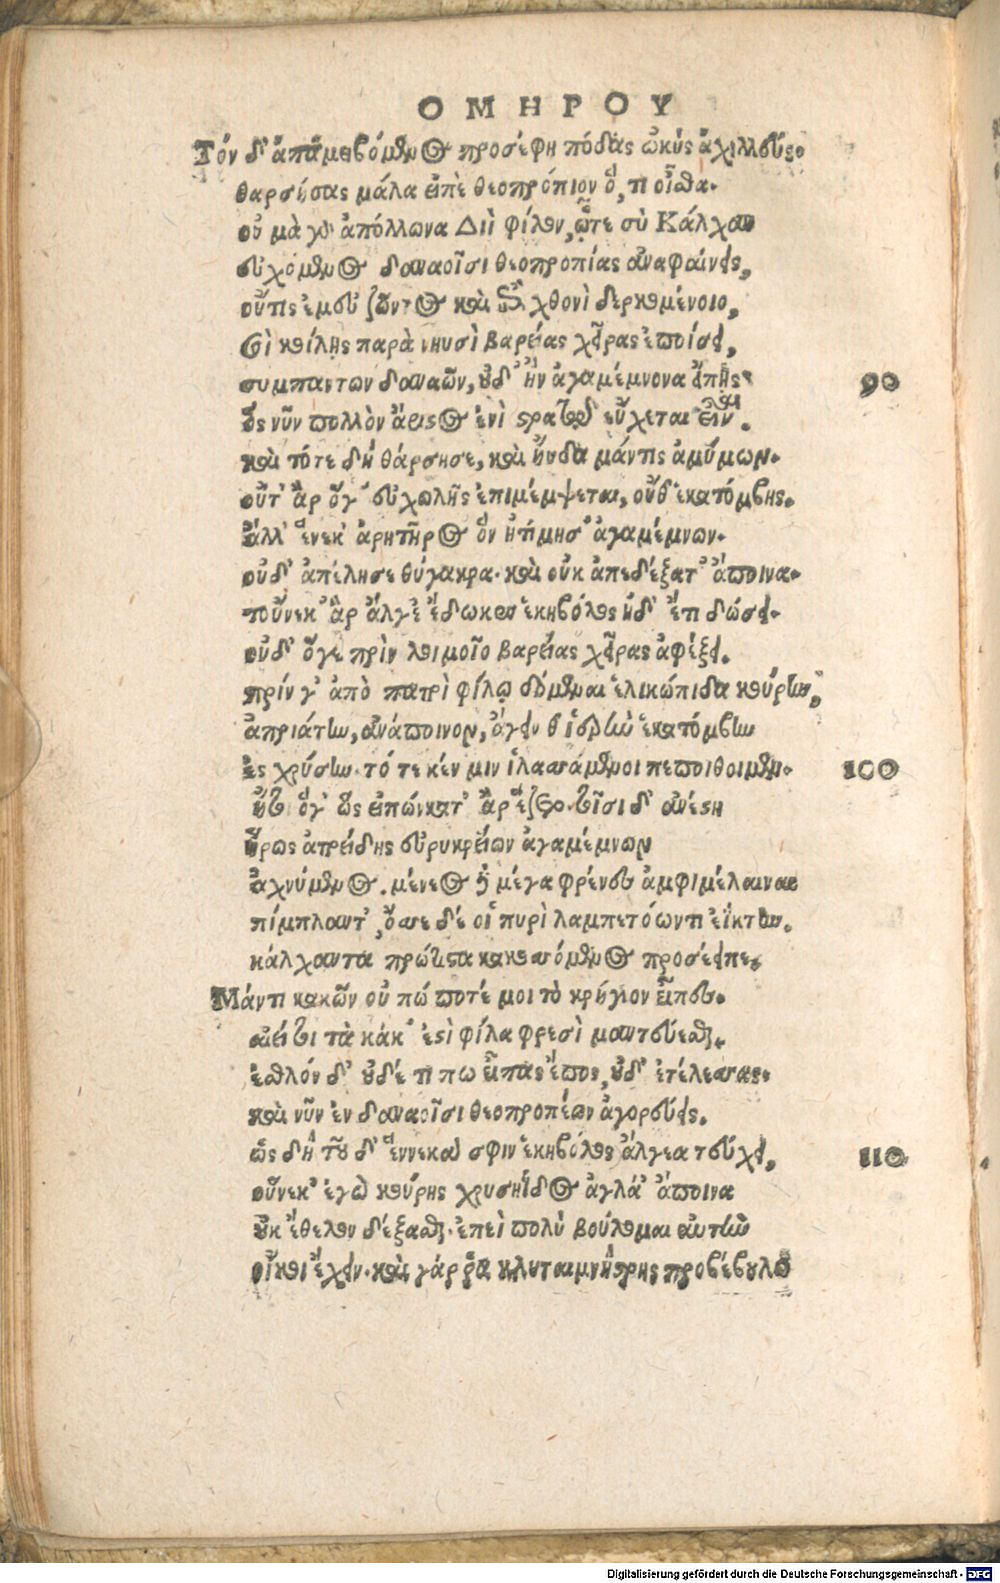 ΟΜΗΡΟΥ
Τὸν δ' ἀπαμειβόμενος προσέφη πόδας ὠκὺς ἀχιλλεύς.
θαρσήσας μάλα εἰπὲ θεοπρόπιον ὅ, τι οἶσθα.
οὐ μὰ γὸ ἀπόλλωνα Διὶ φίλον, ᾧτε σὺ Κάλχαν
εὐχόμενος δαναοῖσι θεοπροπίας ἀναφαίνεις,
οὔτις ἐμεῦ ζῶντος καὶ ἐπὶ χθονὶ δερκομένοιο,
σοὶ κοίλης παρὰ νηυσὶ βαρείας χεῖρας ἐποίσει,
συμπάντων δαναῶν, οὐδ' ἢν ἀγαμέμνονα εἴπης
90
ὃς νῦν πολλὸν ἄριστος ἐνὶ στρατῷ εὔχεται εἶναι.
καὶ τότε δὴ θάρσησε, καὶ ηὔδα μάντις ἀμύμων.
οὔτ' ἂρ ὅγ' εὐχωλῆς ἐπιμέμψεται, οὔθ' ἑκατόμβης.
ἀλλ' ἕνεκ' ἀρητῆρος ὃν ἠτίμησ' ἀγαμέμνων.
οὐδ' ἀπέλησε θύγατρα. καὶ οὐκ ἀπεδέξατ' ἄποινα.
τοὔνεκ' ἂρ ἄλγε' ἔδωκεν ἑκηβόλος ἠδ' ἔτι δώσει.
οὐδ' ὅγε πρὶν λοιμοῖο βαρείας χεῖρας ἀφέξει.
πρίν γ' ἀπὸ πατρὶ φίλῳ δόμεναι ἑλικώπιδα κούρην,
ἀπριάτην, ἀνάποινον, ἄγειν θ' ἱερὴν ἑκατόμβην
ἐς χρύσην. τό τε κέν μιν ἱλασσάμενοι πεπίθοιμεν.
100
ἤτοι ὅγ' ὣς εἰπὼν κατ' ἂρ ἕζετο. τοῖσι δ' ἀνέστη
ἥρως ἀτρείδης εὐρυκρείων ἀγαμέμνων
ἀχνύμενος. μένεος δὲ μέγα φρένες ἀμφιμέλαιναι
πίμπλαντ', ὄσσε δέ οἱ πυρὶ λαμπετόωντι ἐΐκτην.
κάλχαντα πρώτιστα κακοσσόμενος προσέειπε.
Μάντι κακῶν οὐ πώ ποτέ μοι τὸ κρήγιον εἶπες.
αἰεί τοι τὰ κάκ' ἐστὶ φίλα φρεσὶ μαντεύεσθαι.
ἐσθλὸν δ' οὐδέ τι πω εἶπας ἔπος, οὐδ' ἐτέλεσσας.
καὶ νῦν ἐν δαναοῖσι θεοπροπέων ἀγορεύεις.
ὡς δὴ τοῦ δ' ἕννεκά σφιν ἑκηβόλος ἄλγεα τεύχει,
110
οὕνεκ' ἐγὼ κούρης χρυσηΐδος ἀγλά' ἄποινα
οὐκ ἔθελον δέξασθαι. ἐπεὶ πολὺ βούλομαι αὐτὴν
οἴκοι ἔχειν. καὶ γάρ ῥα κλυταιμνήστρης προβέβουλα
Digitalisierung gefördert durch die Deutsche Forschungsgemeinschaft - DFG